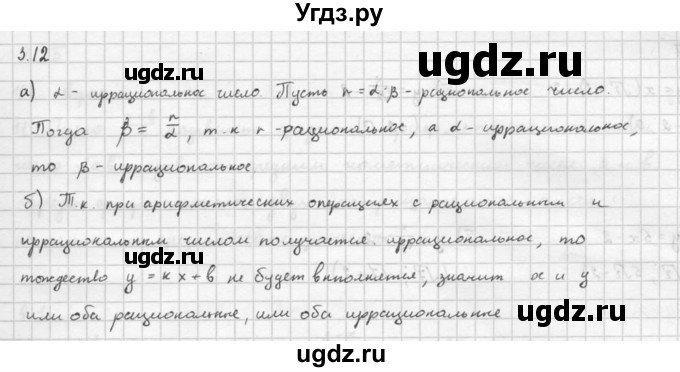 Угдз.ру
3.12
ugdz.ru ugdz.ru
а) α - иррациональное число. Пусть r = α·β - рациональное число.
Тогда β = r/α, т.к r - рациональное, а α - иррациональное,
то β - иррациональное
ugdz.ru ugdz.ru
б) Т.к. при арифметических операциях с рациональным и
иррациональным числом получается иррациональное, то
тождество y = kx + b не будет выполнятся, значит x и y
или оба рациональные, или оба иррациональные
ugdz.ru ugdz.ru
ugdz.ru